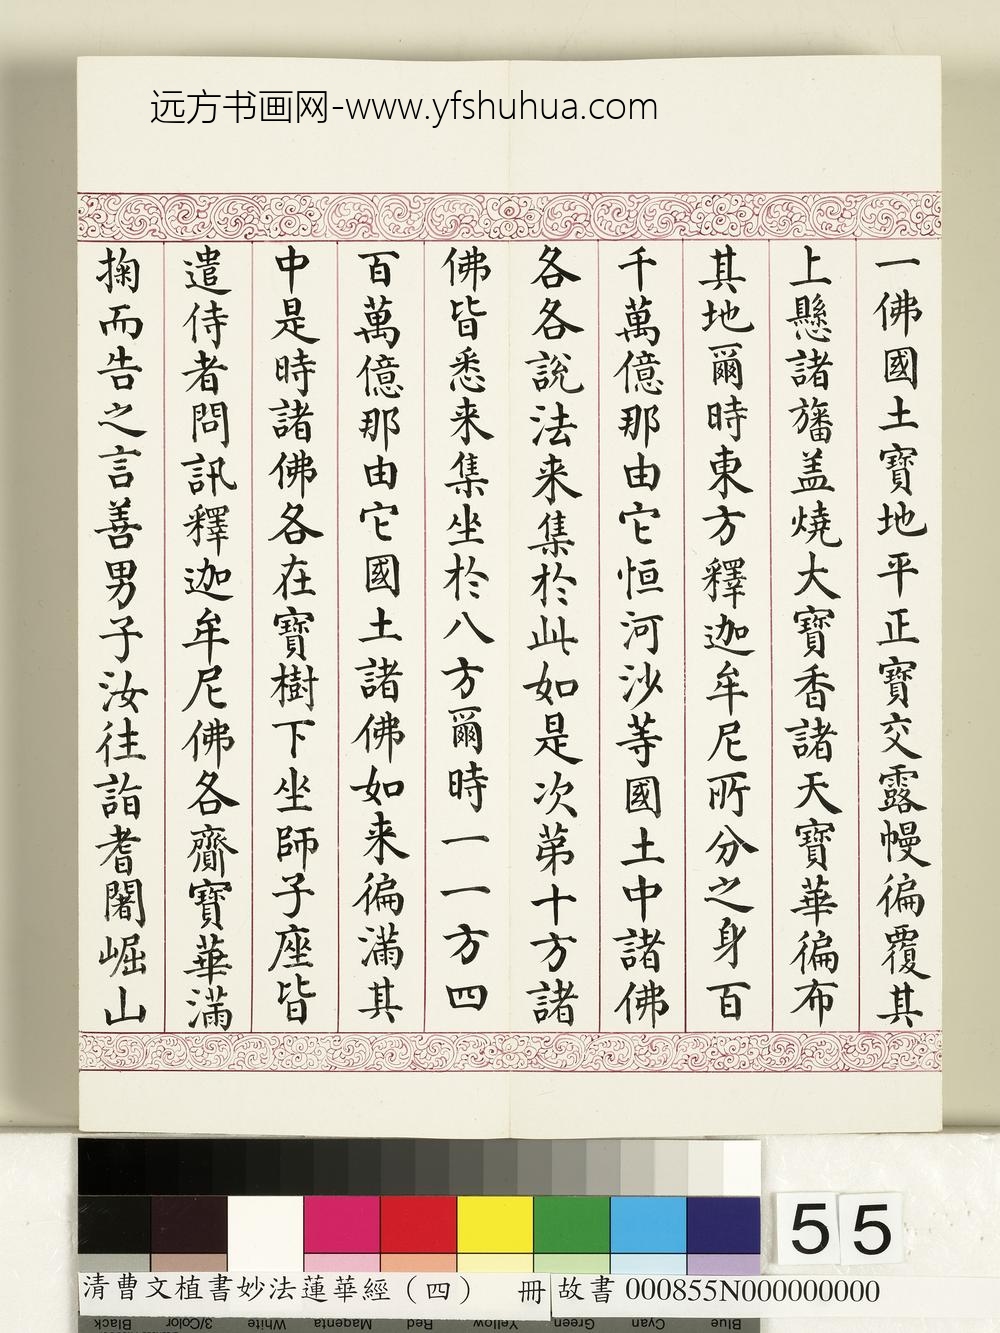 远方书画网-www.yfshuhua.com
一佛國土寶地平正寶交露幔徧覆其
上懸諸旛盖燒大寶香諸天寶華徧布
其地爾時東方釋迦牟尼所分之身百
千萬億那由它恒河沙等國土中諸佛
各各說法来集於此如是次第十方諸
佛皆悉来集坐於八方爾時一一方四
百萬億那由它國土諸佛如来徧滿其
中是時諸佛各在寶樹下坐師子座皆
遣侍者問訊釋迦牟尼佛各齎寶華滿
掬而告之言善男子汝往詣耆闍崛山
55
清曹文植書妙法蓮華經（四） 冊 故書 000855N000000000
Black 3/Color White Magenta Red Yellow Green Cyan Blue